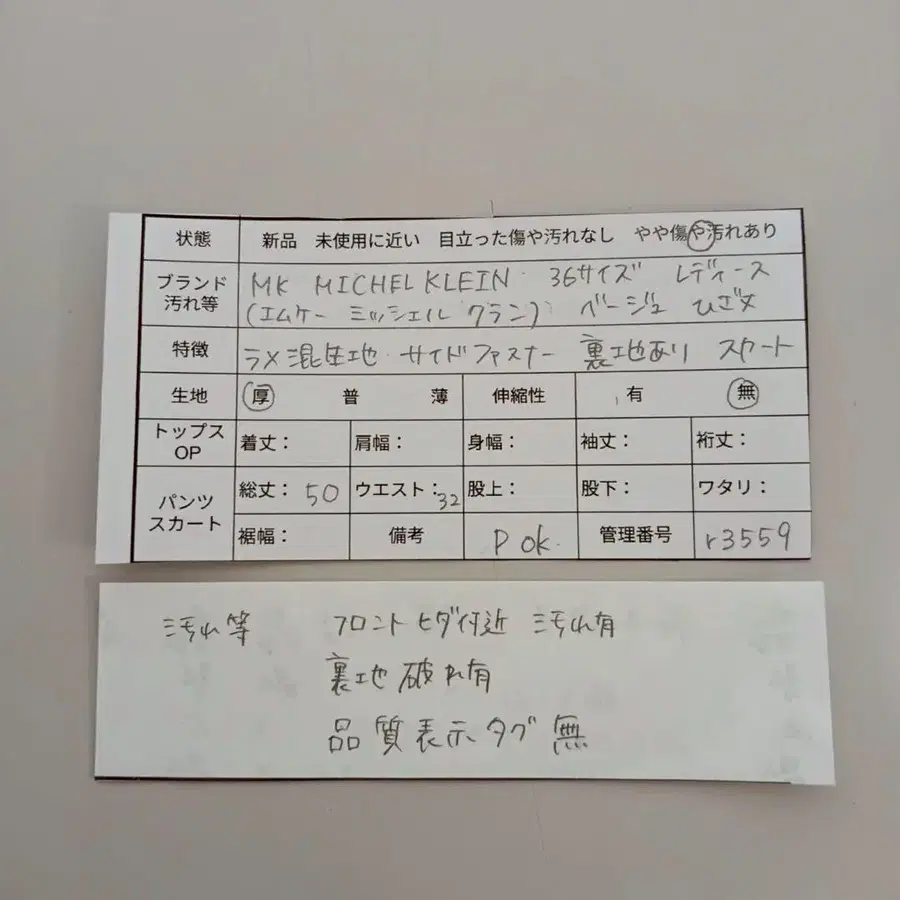 状態 新品 未使用に近い 目立った傷や汚れなし やや傷や汚れあり
ブランド 汚れ等 MK MICHEL KLEIN 36サイズ レディース
(エムケー ミッシェル クラン) ベージュ ひざ丈
特徴 ラメ混生地 サイドファスナー 裏地あり スカート
生地 厚 普 薄 伸縮性 有 無
トップス OP 着丈: 肩幅: 身幅: 袖丈: 裄丈:
パンツ スカート 総丈: 50 ウエスト: 32 股上: 股下: ワタリ:
裾幅: 備考 P ok. 管理番号 r3559
汚れ等 フロントヒダ付近 汚れ有
裏地 破れ有
品質表示タグ 無